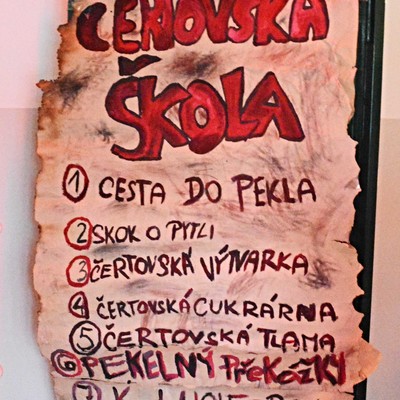 ČERTOVSKÁ
ŠKOLA
1 CESTA DO PEKLA
2 SKOK O PYTLI
3 ČERTOVSKÁ VÝTVARKA
4 ČERTOVSKÁ CUKRÁRNA
5 ČERTOVSKÁ TLAMA
6 PEKELNÝ PřeKážKY
7